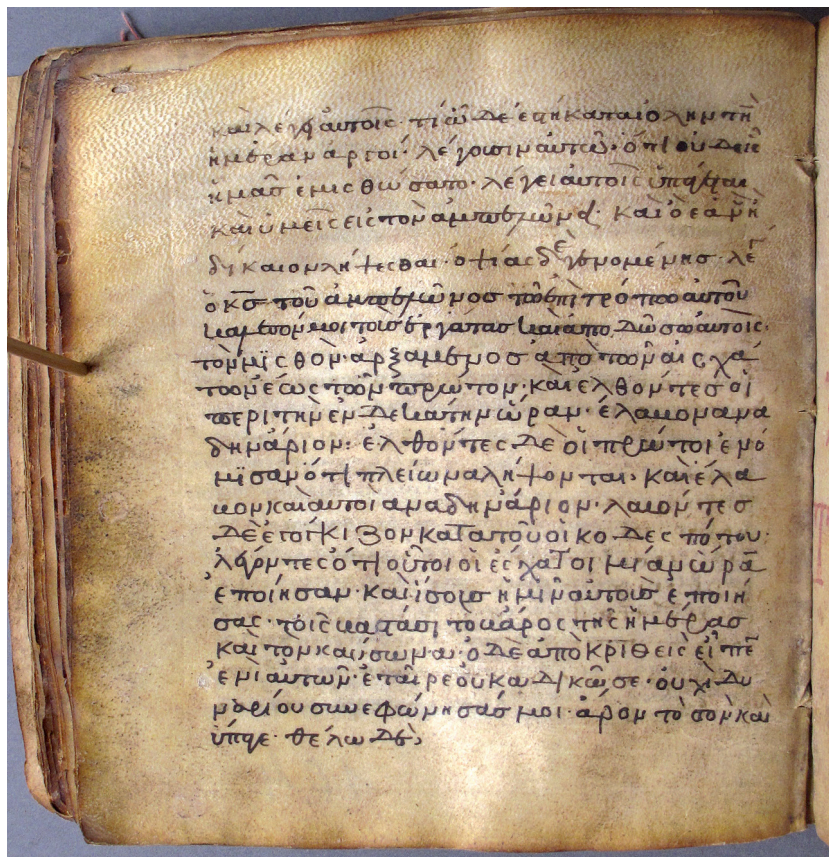 καὶ λέγει αὐτοῖς· τί ὧδε ἑστήκατε ὅλην τὴν
ἡμέραν ἀργοί· λέγουσιν αὐτῷ· ὅτι οὐδεὶς
ἡμᾶς ἐμισθώσατο· λέγει αὐτοῖς ὑπάγεται
καὶ ὑμεῖς εἰς τὸν ἀμπελῶνα· καὶ ὃ ἐὰν ἦ
δίκαιον λήψεσθαι· ὀψίας δὲ γενομένης· λέγ
ὁ κς τοῦ ἀμπελῶνος τῶ ἐπιτρόπω αὐτοῦ
καὶ ἀπόδως αὐτοῖς·
τὸν μισθὸν· ἀρξάμενος ἀπὸ τῶν αἰσχά
τῶν ἕως τῶν πρώτον· καὶ ἐλθόντες οἱ
περὶ τὴν ἑνδεκάτην ὥραν· ἔλαβον ἀνα
δηνάριον· ἐλθόντες δὲ οἱ πρώτοι ἐνό
μισαν ὅτι πλείωνα λήψονται· καὶ ἔλα
βον καὶ αὐτοὶ ἀνα δηνάριον· λαβόντες
δὲ ἐγόγκιζον κατὰ τοῦ οἰκοδεσπότου·
λέγοντες ὅτι οὗτοι οἱ ἐσχατοι μίαν ὥραν
ἐποίησαν· καὶ ἴσους ἡμῖν αὐτοὺς ἐποίη
σας· τοῖς βαστάσι το βάρος τῆς ἡμέρας
καὶ τὸν καύσωνα· ὁ δὲ ἀπὸκριθεὶς εἶπεν
ἑνὶ αὐτῶν· ἑταῖρε οὐκ ἀδικῶ σε· οὐχὶ δυ
ναρίου συνεφώνησάς μοι· ἆρον τὸ σὸν καὶ
ὕπαγε· θέλω δὲ